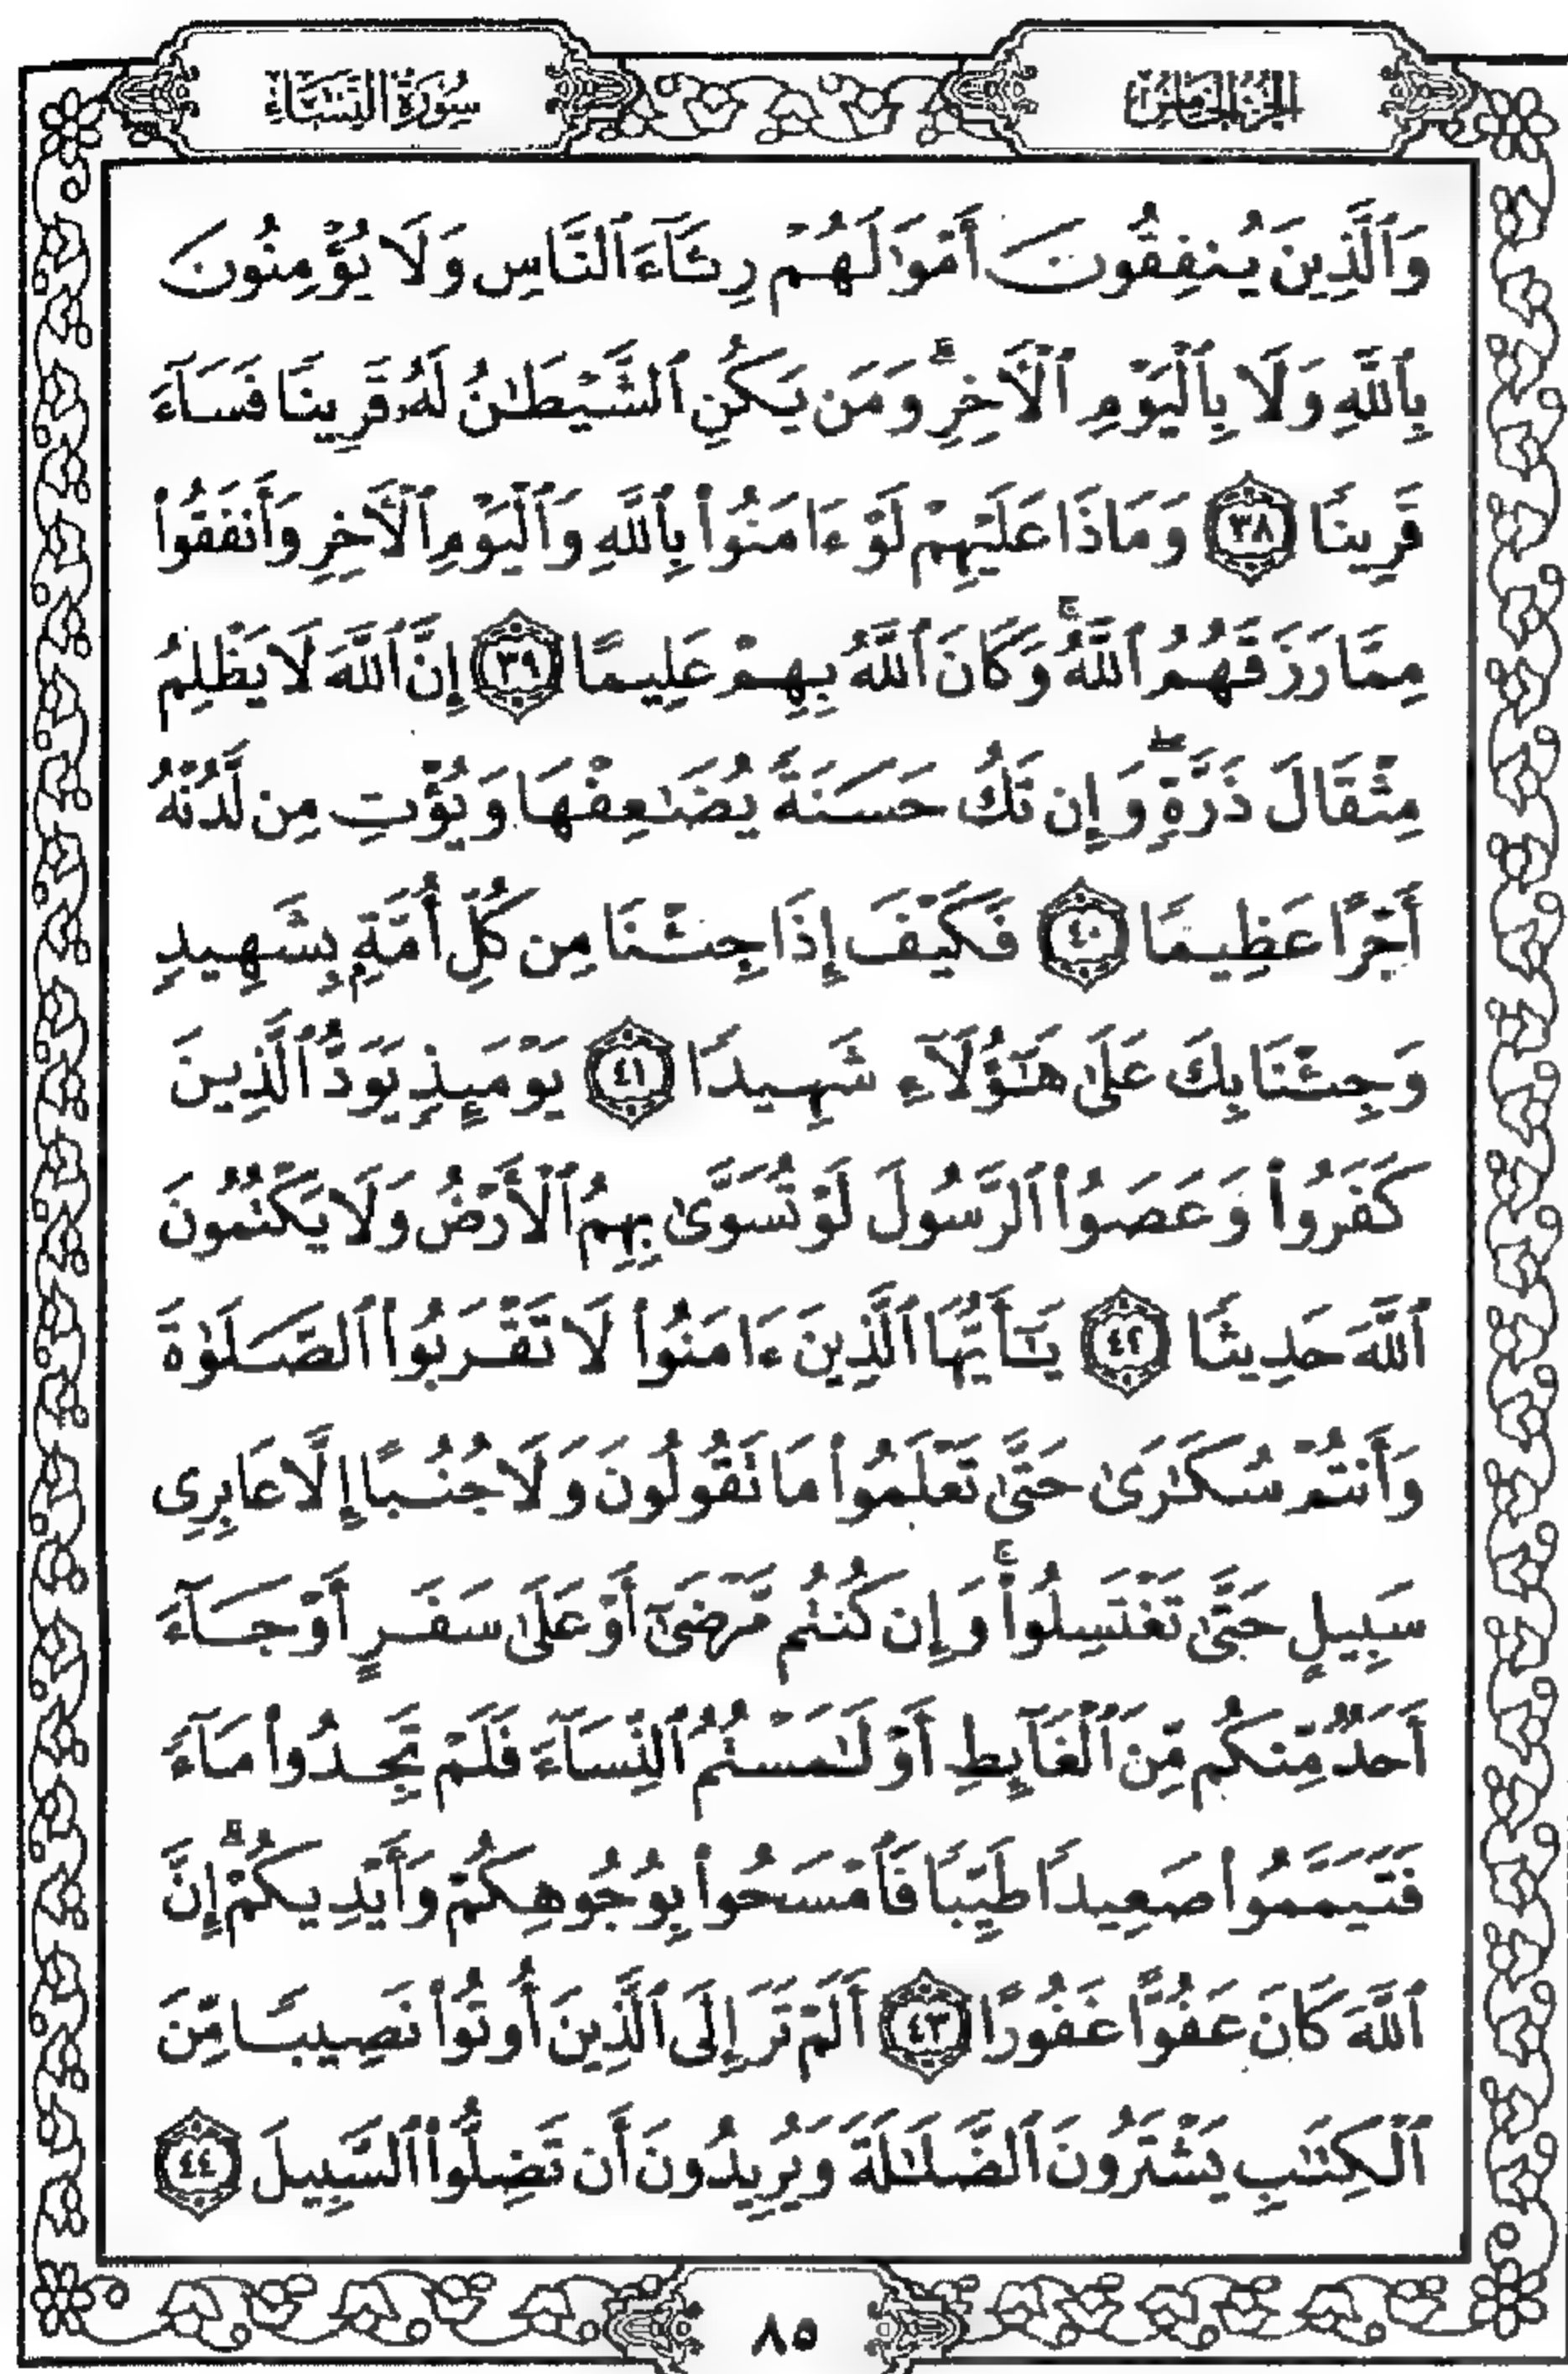 الجزء الخامس
سُورَةُ النِّسَاءِ
وَٱلَّذِينَ يُنفِقُونَ أَمْوَٰلَهُمْ رِئَآءَ ٱلنَّاسِ وَلَا يُؤْمِنُونَ
بِٱللَّهِ وَلَا بِٱلْيَوْمِ ٱلْأَخِرِ ۗ وَمَن يَكُنِ ٱلشَّيْطَٰنُ لَهُۥ قَرِينًا فَسَآءَ
قَرِينًا ٣٨ وَمَاذَا عَلَيْهِمْ لَوْ ءَامَنُوا۟ بِٱللَّهِ وَٱلْيَوْمِ ٱلْأَخِرِ وَأَنفَقُوا۟
مِمَّا رَزَقَهُمُ ٱللَّهُ ۚ وَكَانَ ٱللَّهُ بِهِمْ عَلِيمًا ٣٩ إِنَّ ٱللَّهَ لَا يَظْلِمُ
مِثْقَالَ ذَرَّةٍ ۖ وَإِن تَكُ حَسَنَةً يُضَٰعِفْهَا وَيُؤْتِ مِن لَّدُنْهُ
أَجْرًا عَظِيمًا ٤٠ فَكَيْفَ إِذَا جِئْنَا مِن كُلِّ أُمَّةٍۭ بِشَهِيدٍ
وَجِئْنَا بِكَ عَلَىٰ هَٰٓؤُلَآءِ شَهِيدًا ٤١ يَوْمَئِذٍ يَوَدُّ ٱلَّذِينَ
كَفَرُوا۟ وَعَصَوُا۟ ٱلرَّسُولَ لَوْ تُسَوَّىٰ بِهِمُ ٱلْأَرْضُ وَلَا يَكْتُمُونَ
ٱللَّهَ حَدِيثًا ٤٢ يَٰٓأَيُّهَا ٱلَّذِينَ ءَامَنُوا۟ لَا تَقْرَبُوا۟ ٱلصَّلَوٰةَ
وَأَنتُمْ سُكَٰرَىٰ حَتَّىٰ تَعْلَمُوا۟ مَا تَقُولُونَ وَلَا جُنُبًا إِلَّا عَابِرِى
سَبِيلٍ حَتَّىٰ تَغْتَسِلُوا۟ ۚ وَإِن كُنتُم مَّرْضَىٰٓ أَوْ عَلَىٰ سَفَرٍ أَوْ جَآءَ
أَحَدٌ مِّنكُم مِّنَ ٱلْغَآئِطِ أَوْ لَٰمَسْتُمُ ٱلنِّسَآءَ فَلَمْ تَجِدُوا۟ مَآءً
فَتَيَمَّمُوا۟ صَعِيدًا طَيِّبًا فَٱمْسَحُوا۟ بِوُجُوهِكُمْ وَأَيْدِيكُمْ ۗ إِنَّ
ٱللَّهَ كَانَ عَفُوًّا غَفُورًا ٤٣ أَلَمْ تَرَ إِلَى ٱلَّذِينَ أُوتُوا۟ نَصِيبًا مِّنَ
ٱلْكِتَٰبِ يَشْتَرُونَ ٱلضَّلَٰلَةَ وَيُرِيدُونَ أَن تَضِلُّوا۟ ٱلسَّبِيلَ ٤٤
٨٥